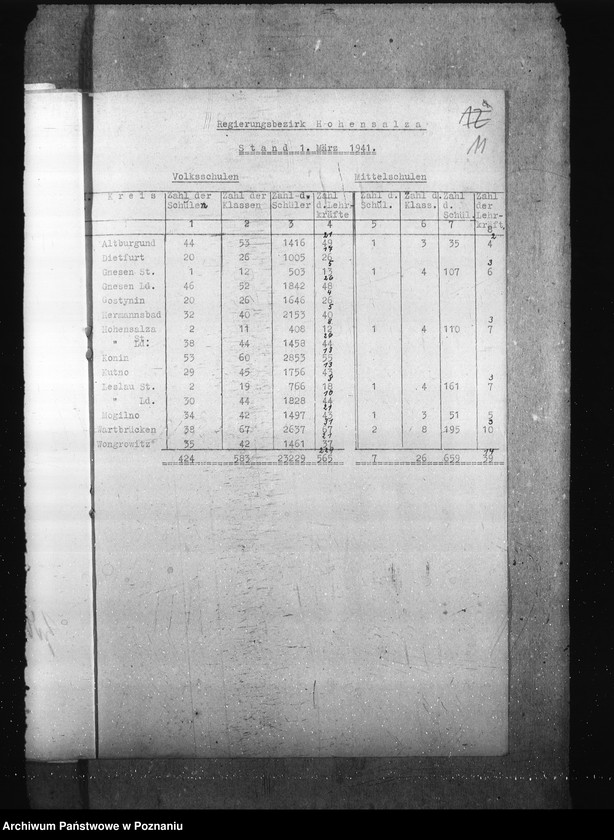 Regierungsbezirk Hohensalza
Stand 1. März 1941.
AZ
11
Volksschulen Mittelschulen
Kreis Zahl der Schulen Zahl der Klassen Zahl d. Schüler Zahl d.Lehrkräfte Zahl d. Schül. Zahl d. Klass. Zahl d. Schül. Zahl der Lehrkräft.
1 2 3 4 5 6 7 8
Altburgund 44 53 1416 49 1 3 35 4
Dietfurt 20 26 1005 26
Gnesen St. 1 12 503 13 1 4 107 6
Gnesen Ld. 46 52 1842 48
Gostynin 20 26 1646 26
Hermannsbad 32 40 2153 40
Hohensalza St. 2 11 408 12 1 4 110 7
" Ld. 38 44 1458 44
Konin 53 60 2853 55
Kutno 29 45 1756 43
Leslau St. 2 19 766 18 1 4 161 7
" Ld. 30 44 1828 44
Mogilno 34 42 1497 43 1 3 51 5
Wartbrücken 38 67 2637 67 2 8 195 10
Wongrowitz 35 42 1461 37
424 583 23229 565 7 26 659 39
Archiwum Państwowe w Poznaniu